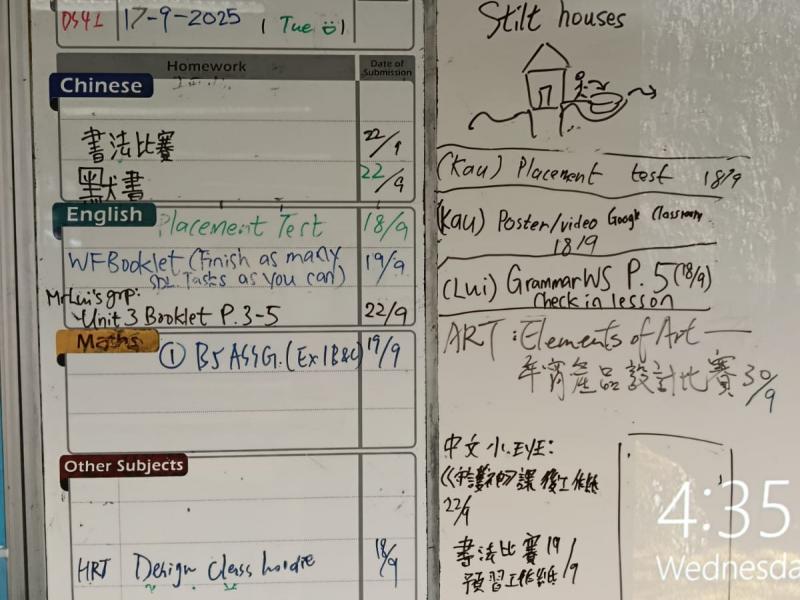 DS41 17-9-2025 ( Tue )
Homework
Date of Submission
Chinese
書法比賽 22/9
默書 22/9
English
Placement Test 18/9
WF Booklet (Finish as many 19/9
SDL Tasks as you can)
Mr Lui's grp:
Unit 3 Booklet P.3-5 22/9
Maths
① B5 ASSG. (Ex 1B&C) 19/9
Other Subjects
HRT Design class hoodie 18/9
Stilt houses
(Kau) Placement test 18/9
(Kau) Poster/video Google Classroom
18/9
(Lui) Grammar WS P.5 (18/9)
Check in lesson
ART : Elements of Art —
年宵產品設計比賽 30/9
中文 小.EYE:
課後工作紙
22/9
書法比賽 19/9
預習工作紙
4:35
Wednesda